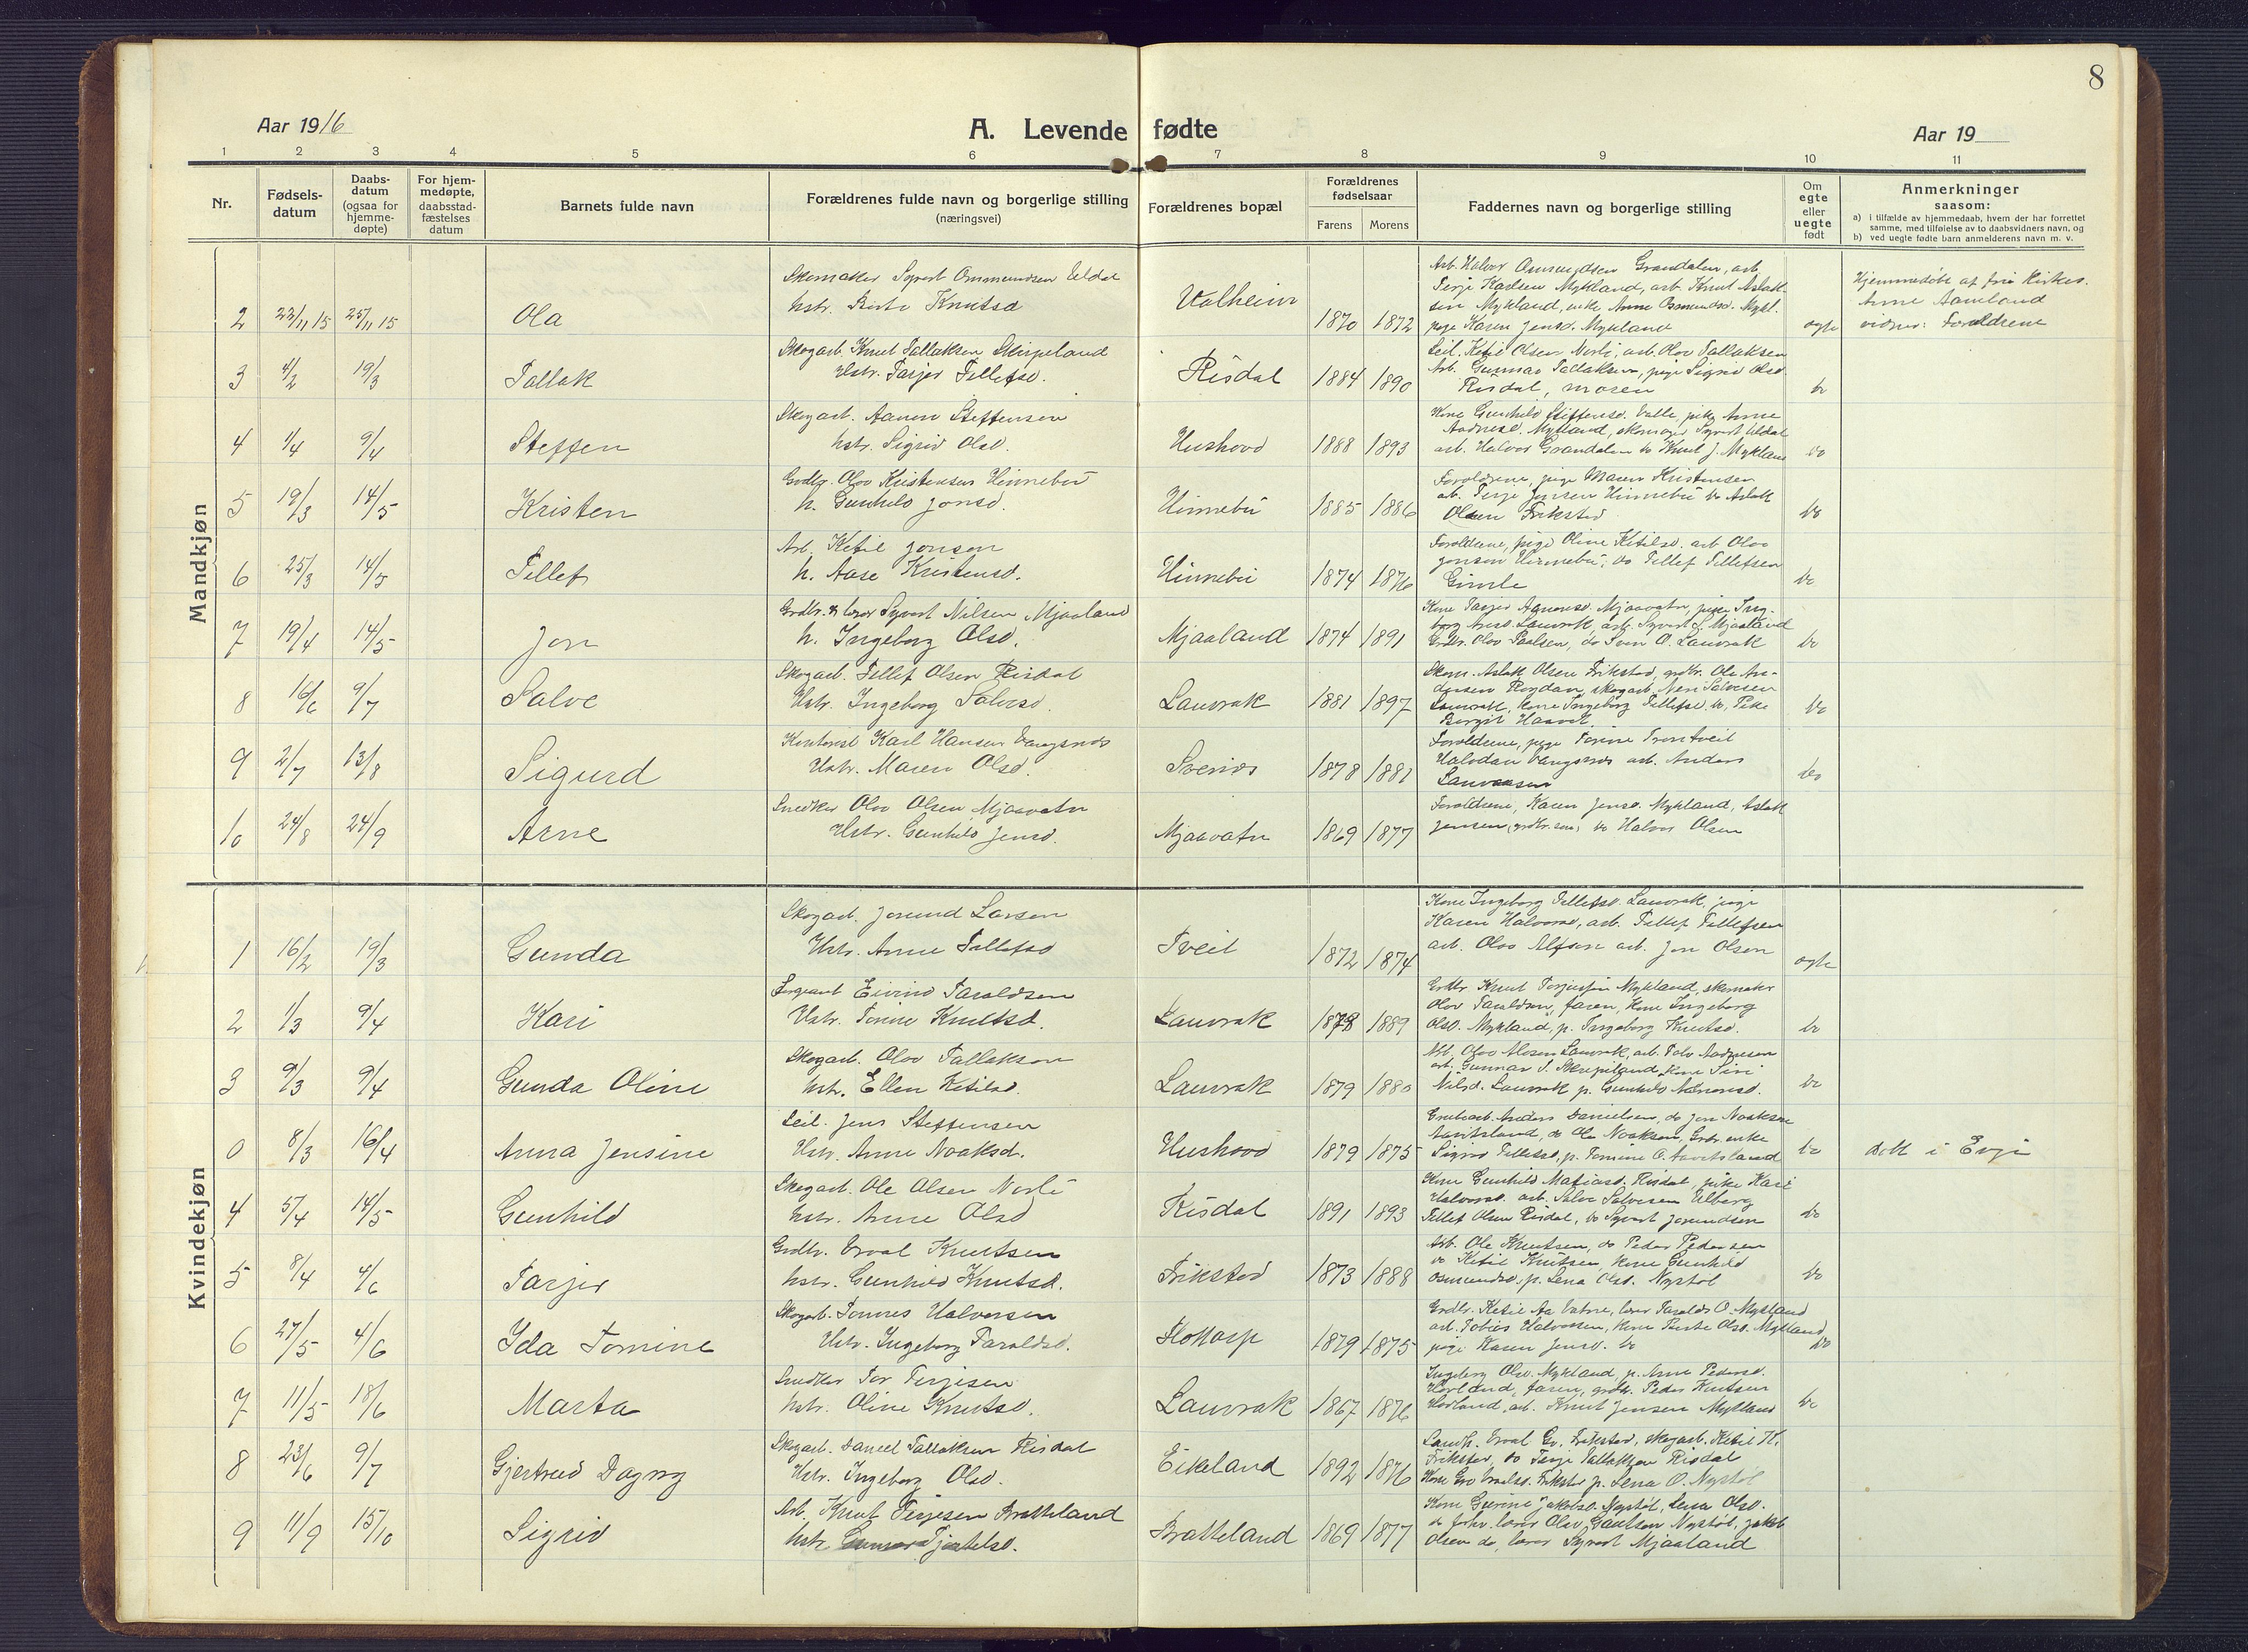 8
Aar 1916
A. Levende fødte
Aar 19
1 2 3 4 5 6 7 8 9 10 11
Nr.
Fødsels-
datum
Daabs-
datum
(ogsaa for
hjemme-
døpte)
For hjem-
medøpte,
daabsstad-
fæstelses
datum
Barnets fulde navn
Forældrenes fulde navn og borgerlige stilling
(næringsvei)
Forældrenes bopæl
Forældrenes
fødselsaar
Farens Morens
Faddernes navn og borgerlige stilling
Om
egte
eller
uegte
født
Anmerkninger
saasom:
a) i tilfælde av hjemmedaab, hvem der har forrettet
samme, med tilføielse av to daabsvidners navn, og
b) ved uegte fødte barn anmelderens navn m. v.
Mandkjøn
2 23/11 15 25/11 15 Ola
Skomaker Syvert Ommundsen Uldal
hstr. Berte Knutsd
Valheim 1870 1872
Arb. Halvor Osmundsen Grandalen, arb.
Terje Karlsen Mykland, arb. Knut Aslak-
sen Mykland, enke Anne Osmundsd. Mykl.
pige Karen Jensd. Mykland
egte
Hjemmedøbt af fri Kirkes.
Arne Aamland
vidner: Forældrene
3 4/2 19/3 Tallak
Skogarb. Knut Tallaksen Skripeland
Hstr. Tarjer Tellefsd.
Risdal 1884 1890
Ketil Olsen Norli, arb. Olov Tallaksen
Arb. Gunnar Tallaksen, pige Signe Olsd.
Risdal, moren
do
4 1/4 9/4 Steffen
Skogarb. Aanon Steffensen
hstr. Sigrid Olsd.
Hushovd 1888 1893
Kone Gunhild Steffensd. Valle, pike Anne
Mykland, skomager Syvert Uldal
arb. Halvor Grandalen do Knut J. Mykland
do
5 19/3 14/5 Kristen
Grdbr. Olov Kristensen Hinnebu
h. Gunhild Jonsd.
Hinnebu 1885 1886
Forældrene, pige Maren Kristensen
arb. Terje Jonsen Hinnebu do Aslak
Olsen Frikstad
do
6 25/3 14/5 Tellef
Arb. Ketil Jonsen
h. Aase Kristensd.
Hinnebu 1874 1876
Forældrene, pige Oline Ketilsd. arb. Olov
Jonsen Hinnebu, do Tellef Tellefsen
Gimle
do
7 19/4 14/5 Jon
Grdbr. & lærer Syvert Nilsen Mjaaland
h. Ingeborg Olsd.
Mjaaland 1874 1891
Kone Tarjer Aanonsd. Mjaavatn, pige Ing-
borg Lauvrak arb. Syvert S. Mjaaland
Grdbr. Olov Paalsen, do Sven O. Lauvrak
do
8 16/6 9/7 Salve
Skogarb. Tellef Olsen Risdal
Hstr. Ingeborg Salvesd.
Lauvrak 1881 1897
Skom. Aslak Olsen Frikstad, grdbr. Ole An-
dersen Rogdan, skogarb. Salvesen
Lauvrak, kone Ingeborg Tellefsd. do, Pike
Birgit Haavet
do
9 2/7 13/8 Sigurd
Kontorist Karl Hansen Vangsnes
Hstr. Maren Olsd.
Svenes 1878 1881
Forældrene, pige Tomine Trontveit
Halvdan Vangsnes arb. Anders
do
10 24/8 24/9 Arne
Snedker Olov Olsen Mjaavatn
Hstr. Gunhild Jensd.
Mjaavatn 1869 1877
Forældrene, Karen Jensd. Mykland, Aslak
Jensen (grdbr. søn) do Halvor Olsen
Kvindekjøn
1 16/2 19/3 Gunda
Skogarb. Jorund Larsen
Hstr. Anne Tellefsd
Tveit 1872 1874
Kone Ingeborg Tellefsd. Lauvrak, pige
Karen Halvorsd, arb. Tellef Tellefsen
arb. Olov Alfsen arb. Jon Olsen
egte
2 1/3 9/4 Kari
Sergeant Eivind Taraldsen
Hstr. Tomine Knutsd.
Lauvrak 1878 1889
Grdbr. Knut Terjesen Mykland, skomaker
Olov Taraldsen, faren, Kone Ingeborg
Olsd. Mykland, p. Ingeborg Knutsd.
do
3 9/3 9/4 Gunda Oline
Skogarb. Olov Tallaksen
hstr. Ellen Ketilsd.
Lauvrak 1879 1880
Arb. Olov Lauvrak, arb. Tolv Aadnesen
arb. Gunnar T. Skripeland, Kone Siri
Nilsd. Lauvrak p. Gunhild Aanonsd.
do
0 8/3 16/4 Anna Jensine
Jens Steffensen
Hstr. Anne Noaksd.
Hushovd 1879 1875
Grubearb. Anders Danielsen, do Jon Noaksen
Aavitsland, do Ole Noaksen, Grdbr. enke
Sigrid Tellefsd, p. Tomine O. Aavitsland
do
døbt i Evje
4 5/4 14/5 Gunhild
Skogarb. Ole Olsen Norli
hstr. Anne Olsd
Risdal 1891 1893
Kone Gunhild Matiasd. Risdal, pike Kari
Halvorsd. arb. Salve Salvesen Elberg
Tellef Olsen Risdal, do Syvert Jorundsen
do
5 8/4 4/6 Tarjer
Grdbr. Eivol Knutsen
hstr. Gunhild Knutsd.
Frikstad 1873 1888
Arb. Ole Knutsen, do Peder Pedersen
do Ketil Knutsen, Kone Gunhild
Osmundsd, p. Lena Olsd. Nystøl
do
6 27/5 4/6 Ida Tomine
Skogarb. Tomnes Halvorsen
Hstr. Ingeborg Taraldsd.
Flottorp 1879 1875
Grdbr. Ketil Aa Vatne, lærer Tarald O. Mykland
arb. Tobias Halvorsen, Kone Berte Olsd. Mykland
pige Karen Jensd. do
do
7 11/5 18/6 Marta
Snedker Tor Terjesen
hstr. Oline Knutsd.
Lauvrak 1867 1876
Ingeborg Olsd. Mykland, p. Anne Pedersd.
Hovland, faren, grdbr. Peder Knutsen
Hovland, arb. Knut Jensen Mykland
do
8 23/6 9/7 Gjertrud Dagny
Skogarb. Daniel Tallaksen Risdal
Hstr. Ingeborg Olsd.
Eikeland 1892 1876
Frikstad, skogarb. Ketil K.
Frikstad, do Terje Tallaksen Risdal
Kone Gro Frikstad p. Lena O. Nystøl
9 11/9 15/10 Sigrid
Arb. Knut Terjesen Bratteland
hstr. Gunvor Tjøstelsd.
Bratteland 1869 1877
Kone Gurine Jakobsd. Nystøl, Lena Olsd.
do lærer Olov Gautsen Nystøl, Jakob
Olsen do, lærer Syvert Mjaaland